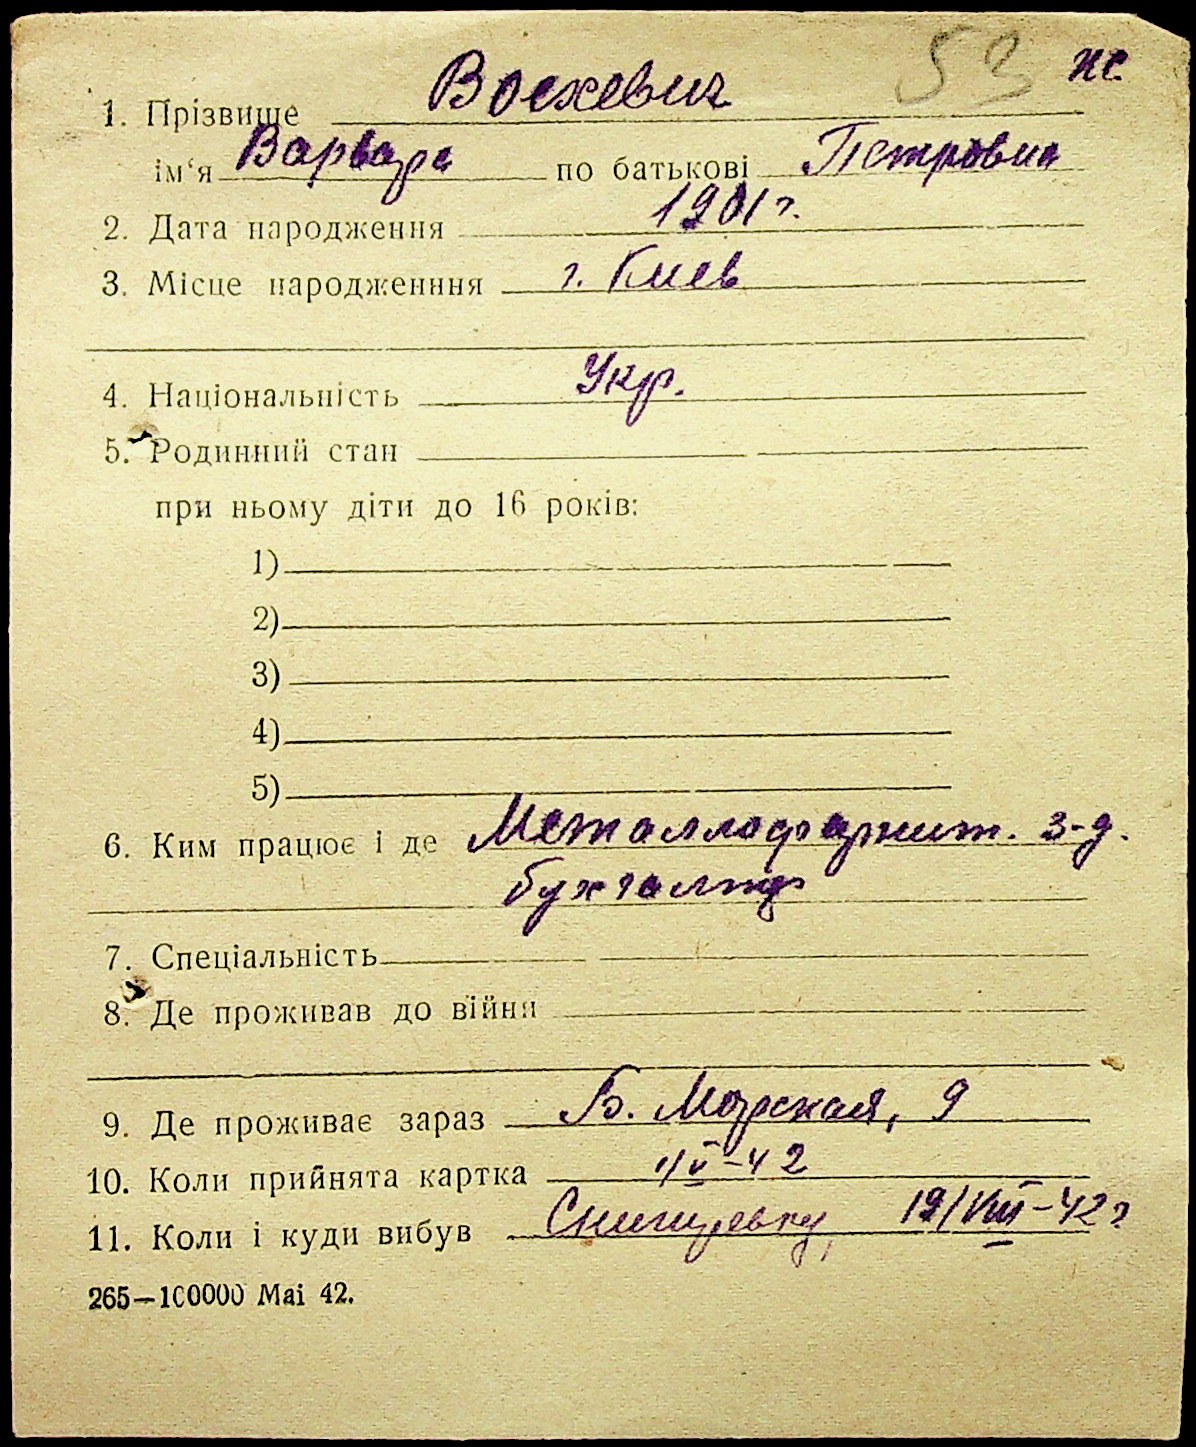 53 же
1. Прізвище Воскевич
ім'я Варвара по батькові Петровна
2. Дата народження 1901 г.
3. Місце народженння г. Киев
4. Національність Укр.
5. Родинний стан
при ньому діти до 16 років:
1)
2)
3)
4)
5)
6. Ким працює і де Металлофурнит. з-д.
бухгалтер
7. Спеціальність
8. Де проживав до війни
9. Де проживає зараз Б. Морская, 9
10. Коли прийнята картка V-42
11. Коли і куди вибув Снигиревку, 19/VIII-42 г
265—100000 Mai 42.